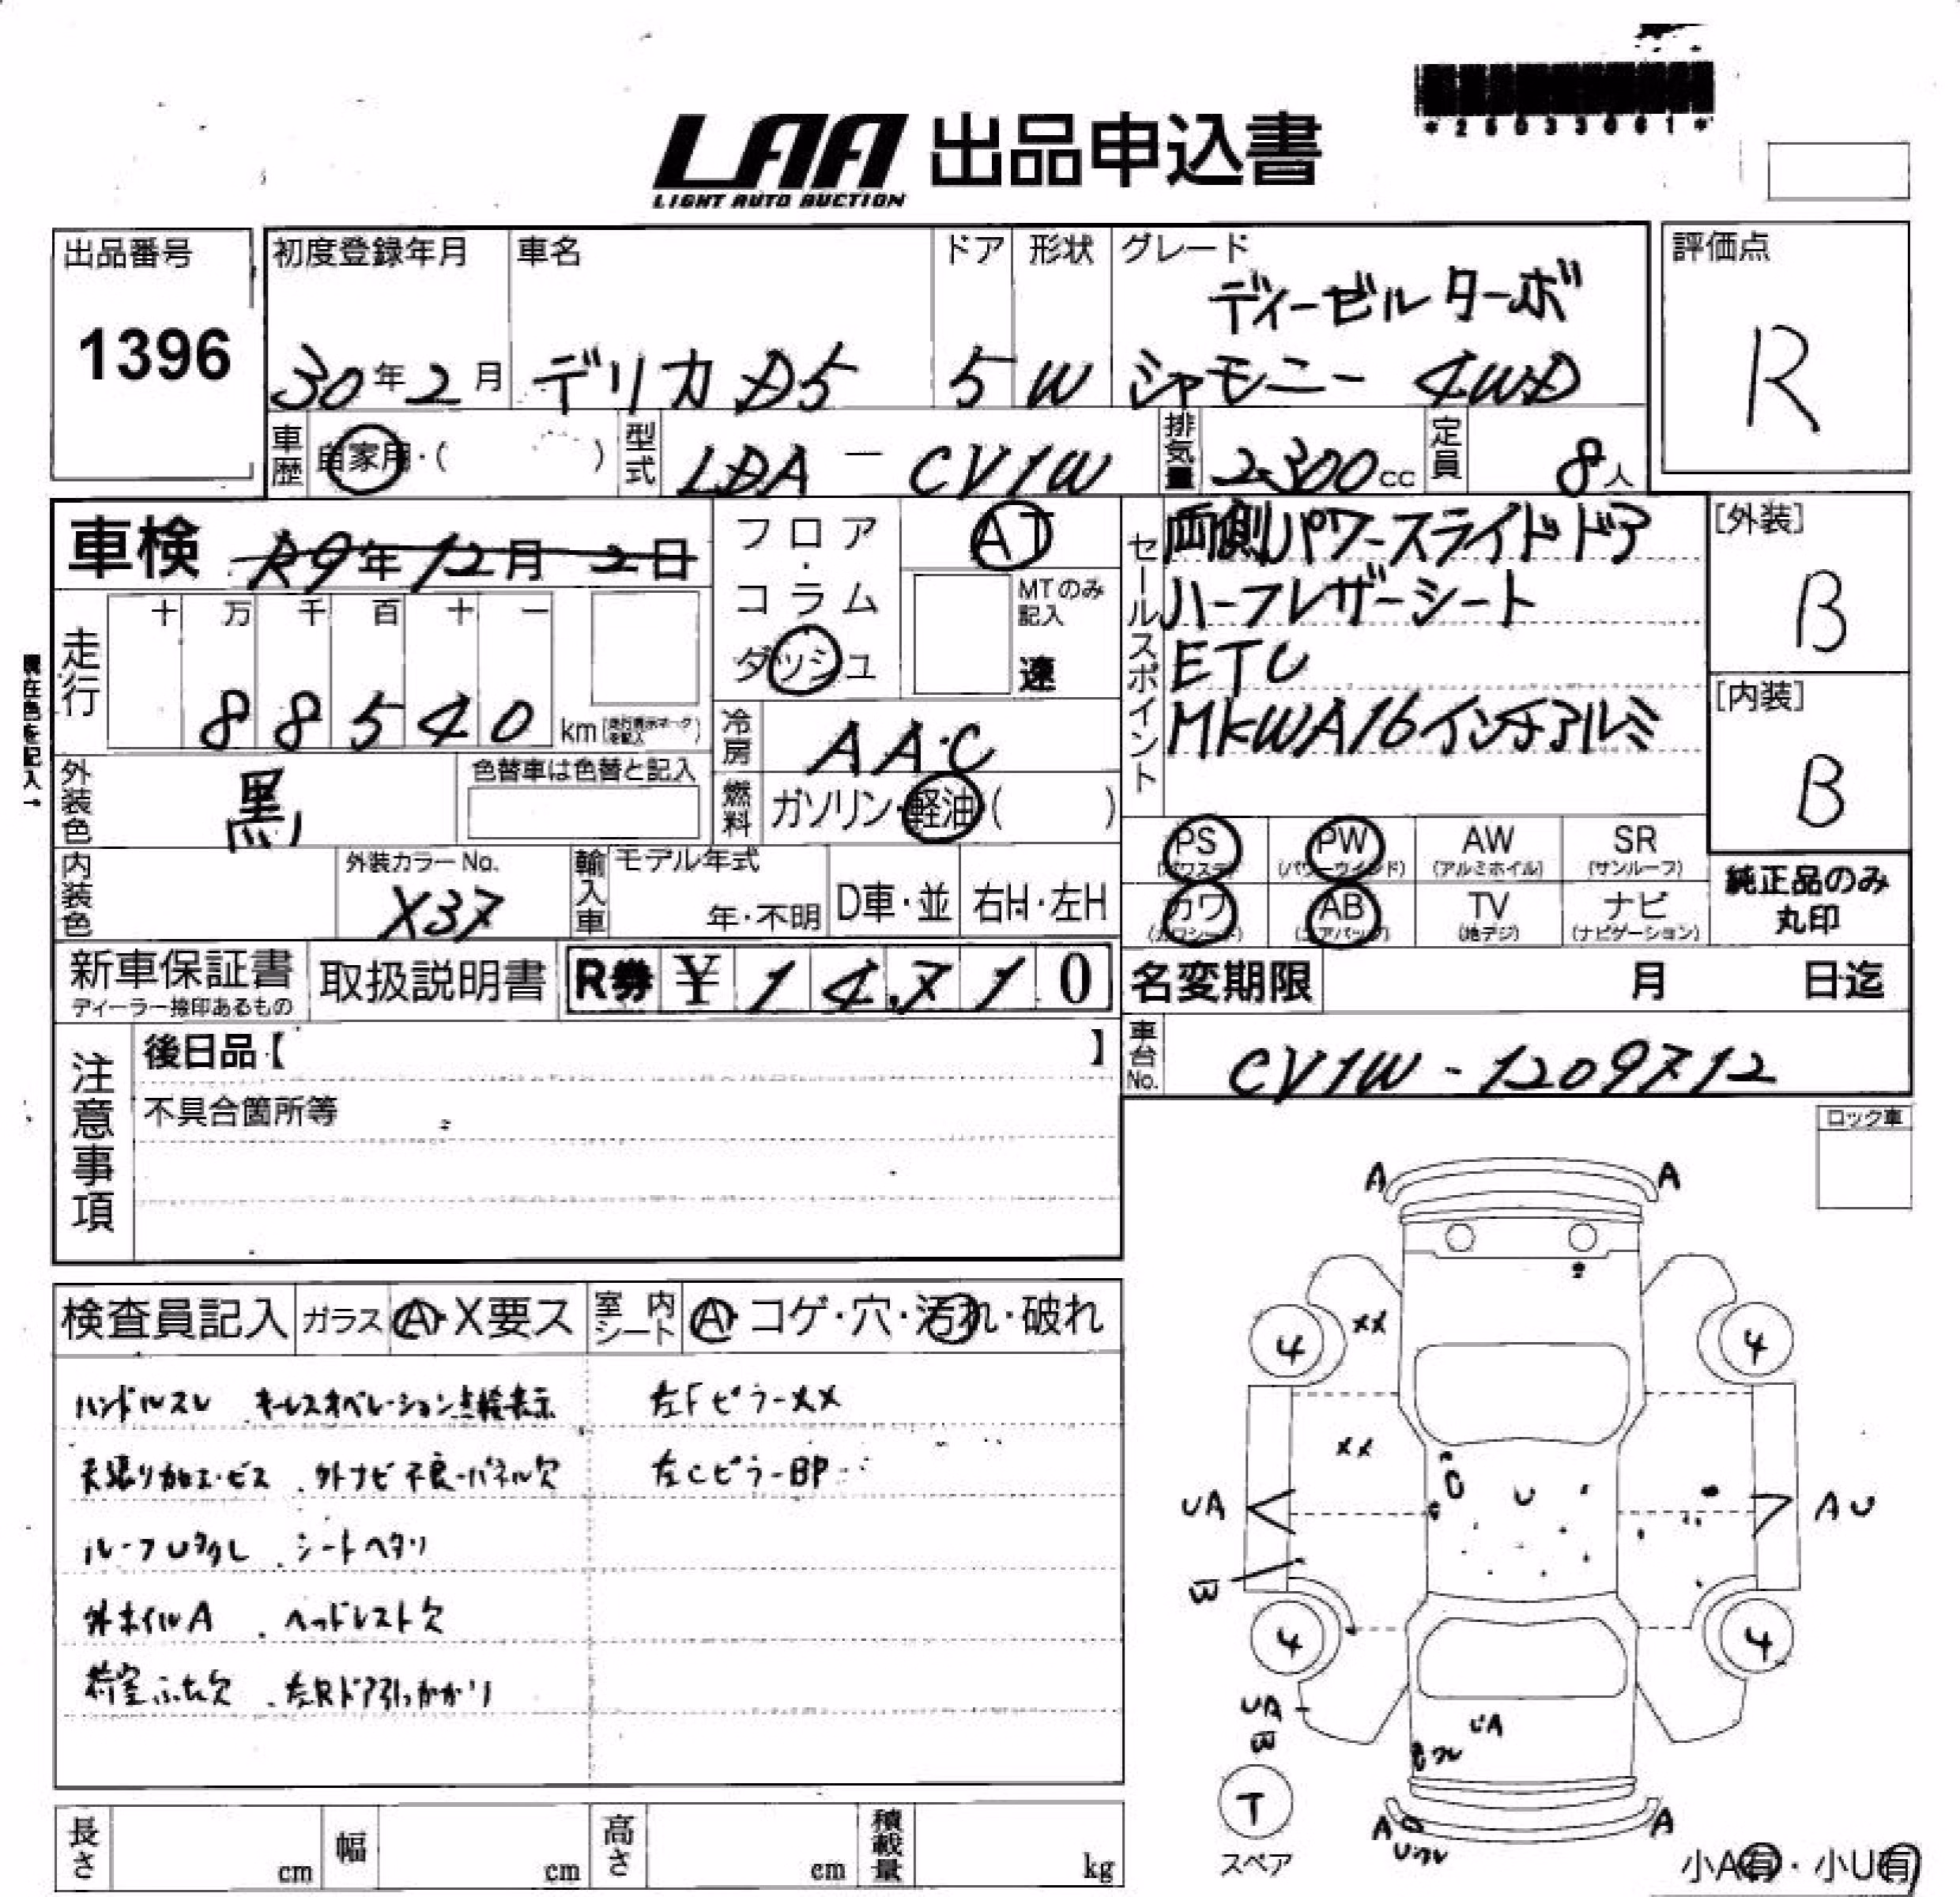 *25033061*
LAA 出品申込書
LIGHT AUTO AUCTION
出品番号
1396
初度登録年月
30年2月
車名
デリカD5
ドア
5
形状
W
グレード
ディーゼルターボ
シャモニー 4WD
評価点
R
車歴
自家用・( )
型式
LDA - CV1W
排気量
2300cc
定員
8人
車検 R9年12月2日
フロア・コラム
ダッシュ
AT
MTのみ記入
速
走行
十 万 千 百 十 一
88540
km
現在色を記入→
外装色
黒
色替車は色替と記入
冷房
AAC
燃料
ガソリン・軽油( )
セールスポイント
両側パワースライドドア
ハーフレザーシート
ETC
MKWA16インチアルミ
[外装]
B
[内装]
B
PS
(パワステ)
PW
(パワーウインド)
AW
(アルミホイル)
SR
(サンルーフ)
カワ
(カワシート)
AB
(エアバッグ)
TV
(地デジ)
ナビ
(ナビゲーション)
純正品のみ
丸印
内装色
外装カラーNo.
X37
輸入車
モデル年式
年・不明
D車・並
右H・左H
新車保証書
ディーラー捺印あるもの
取扱説明書
R券 ¥ 14,710
名変期限 月 日迄
車台No.
CV1W-1209712
注意事項
後日品【 】
不具合箇所等
ロック車
検査員記入
ガラス
A・X要ス
室内シート
A・コゲ・穴・汚れ・破れ
ハンドルスレ キーレスオペレーション点検表示
左FピラーXX
天張り加工・ビス .外ナビ不良・パネル欠
左CピラーBP
ルーフUタタし .シートヘタリ
外ホイルA .ヘッドレスト欠
荷室ふた欠 .左Rドア引っかかり
A A
XX
4 4
XX
U
UA
AU
W
4 4
UA
W
UA
T
スペア
A A
小A有・小U有
長さ cm
幅 cm
高さ cm
積載量 kg